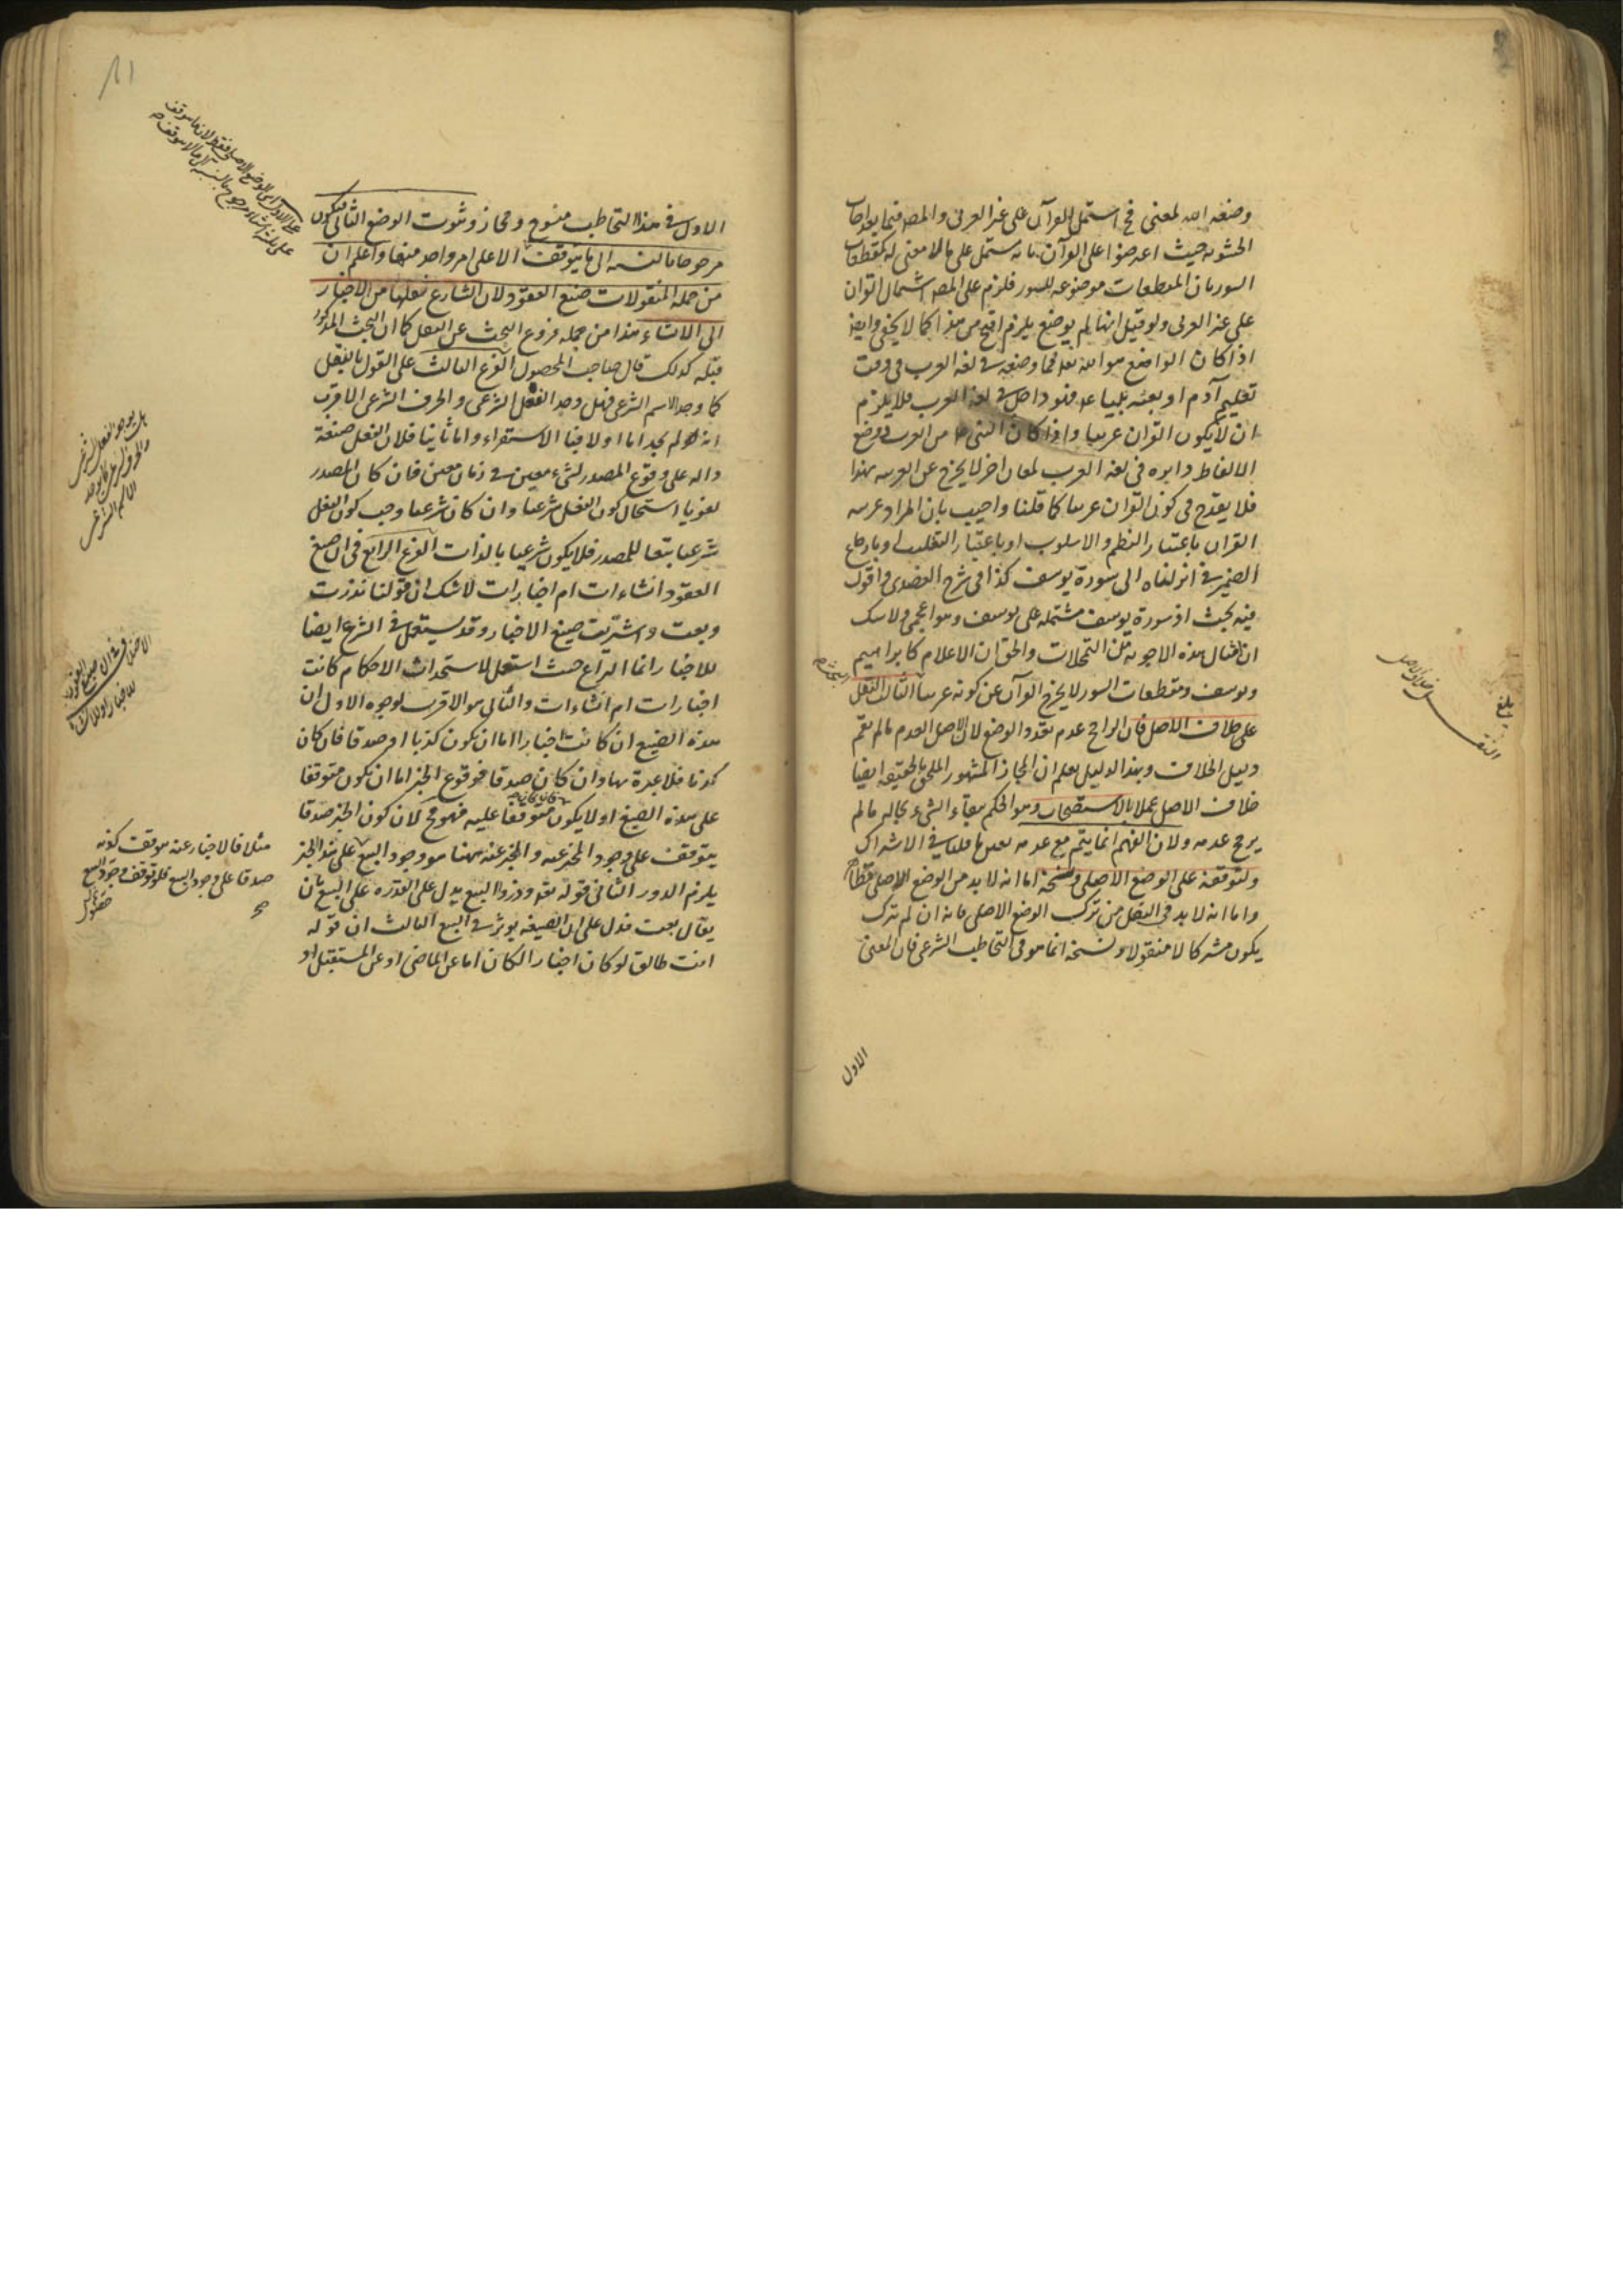 وضعه الله لمعنى فح اشتمل القرآن على غير العربى والمصر فيما بعد اجاب
الحشوية حيث اعترضوا على القرآن بانه يشتمل على ما لا معنى له كمقطعات
السور بان المقطعات موضوعة للسور فلزم على المصر اشتمال القرآن
على غير العربى ولو قيل انها لم يوضع يلزم اقبح من هذا كما لا يخفى وايضا
اذا كان الواضع هو الله تعالى فما وضعه فى لغة العرب فى وقت
تعليم آدم او بعثه نبيا فهو داخل فى لغة العرب فلا يلزم
ان لا يكون القرآن عربيا واذا كان النبى من العرب فوضع
الالفاظ دايرة فى لغة العرب لمعان اخر لا يخرج عن العربية بهذا
فلا يقدح فى كون القرآن عربيا كما قلنا واجيب بان المراد عربية
القرآن باعتبار النظم والاسلوب او باعتبار التغليب او بارجاع
الضمير فى انزلناه الى سورة يوسف كذا فى شرح العضدى واقول
فيه بحث اذ سورة يوسف مشتملة على يوسف وهو اعجمى ولا شك
ان امثال هذه الاجوبة من التمحلات والحق ان الاعلام كابراهيم
ويوسف ومقطعات السور لا يخرج القرآن عن كونه عربيا الثالث النقل
على خلاف الاصل فان الراجح عدم تعدد الوضع لان الاصل العدم ما لم يقم
دليل الخلاف وبهذا الدليل يعلم ان المجاز المشهور الملحق بالحقيقة ايضا
خلاف الاصل عملا بالاستصحاب وهو الحكم ببقاء الشىء بحاله ما لم
يرجح عدمه ولان الفهم انما يتم مع عدمه لما قلنا فى الاشتراك
ولتوقفه على الوضع الاصلى ونسخه اما انه لا بد من الوضع الاصلى فظاهر
واما انه لا بد فى النقل من ترك الوضع الاصلى فانه ان لم يترك
يكون مشتركا لا منقولا ونسخه انما هو فى التخاطب الشرعى فان المعنى
الاول
النقل خلاف الاصل
بلغ
الاول فى هذا التخاطب منسوخ ومجاز وثبوت الوضع الثانى فيكون
مرجوحا بالنسبة الى ما يتوقف الا على امر واحد منها واعلم ان
من جملة المنقولات صيغ العقود لان الشارع نقلها من الاخبار
الى الانشاء هذا من جملة فروع البحث عن النقل كما ان البحث المذكور
قبله كذلك قال صاحب المحصول الفرع الثالث على القول بالنقل
كما وجد الاسم الشرعى فهل وجد الفعل الشرعى والحرف الشرعى الاقرب
انه لم يوجد اما اولا فبالاستقراء واما ثانيا فلان الفعل صيغة
دالة على وقوع المصدر لشىء معين فى زمان معين فان كان المصدر
لغويا استحال كون الفعل شرعيا وان كان شرعيا وجب كون الفعل
شرعيا تبعا للمصدر فلا يكون شرعيا بالذات الفرع الرابع فى ان صيغ
العقود انشاءات ام اخبارات لا شك ان قولنا نذرت
وبعت واشتريت صيغ الاخبار وقد يستعمل فى الشرع ايضا
للاخبار انما النزاع حيث استعمل لاستحداث الاحكام كانت
اخبارات ام انشاءات والثانى هو الاقرب لوجوه الاول ان
هذه الصيغ ان كانت اخبارا اما ان يكون كذبا او صدقا فان كان
كذبا فلا عبرة بها وان كان صدقا فوقوع الخبر اما ان يكون متوقفا
على هذه الصيغ او لا يكون متوقفا عليه فهو مح لان كون الخبر صدقا
يتوقف على وجود المخبر عنه والمخبر عنه ههنا هو وجود البيع على هذا الخبر
يلزم الدور الثانى قوله تعالى وذروا البيع يدل على القدرة على البيع بان
يقال بعت فدل على ان الصيغة يؤثر فى البيع الثالث ان قوله
انت طالق لو كان اخبارا لكان اما عن الماضى او عن المستقبل او
هل يوجد الفعل الشرعى
والحرف الشرعى كما يوجد
الاسم الشرعى
فى ان صيغ العقود
للاخبار او للانشاء
مثلا فالاخبار عنه يتوقف كونه
صدقا على وجود البيع فلو توقف وجود البيع